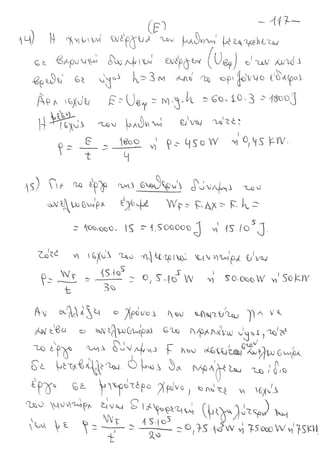 (Ε) -117-
14) Η χημική ενέργεια του μαθητή μετατρέπεται
σε βαρυτική δυναμική ενέργεια (Uβαρ) όταν αυτός
βρεθεί σε ύψος h=3m από το οριζόντιο έδαφος
Άρα ισχύει E=Uβαρ=m.g.h=60.10.3=1800J
Η μέση ισχύς του μαθητή είναι τότε:
P=E/t=1800/4 ή P=450W ή 0,45KW.
15) Για το έργο της σταθερής δύναμης του
ανελκυστήρα έχουμε WF=F.Δx=F.h=
=100.000.15=1.500000J ή 15.10⁵J.
τότε η ισχύς του ηλεκτρικού κινητήρα είναι
P=WF/t=15.10⁵/30=0,5.10⁵W ή 50.000W ή 50KW
Αν αλλάξει ο χρόνος που απαιτείται για να
ανέβει ο ανελκυστήρας στο παραπάνω ύψος, τότε
το έργο της δύναμης F που ασκείται στον ανελκυστήρα
δε μεταβάλλεται. Όμως θα παράγεται το ίδιο
έργο σε μικρότερο χρόνο, οπότε η ισχύς
του κινητήρα είναι διαφορετική (μεγαλύτερη) και
ίση με P=WF/t=15.10⁵/20=0,75.10⁵W ή 75000W ή 75KW